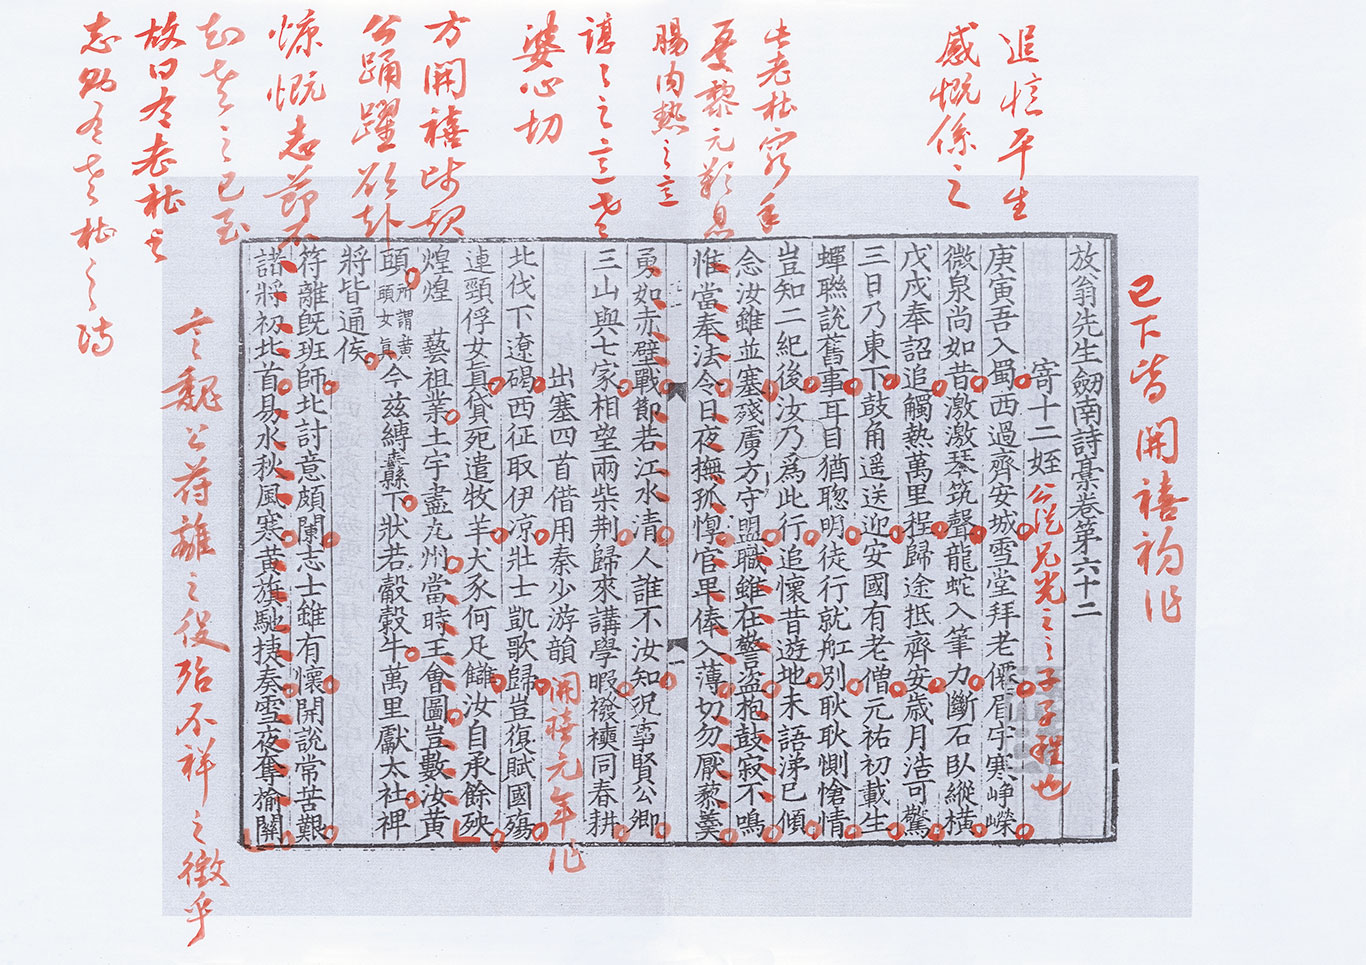 已下皆開禧初作
放翁先生劔南詩藁卷第六十二
寄十二姪
公從兄光之之子子程也
追憶平生
感慨係之
庚寅吾入蜀西過齊安城雪堂拜老僊眉宇寒崢嶸
微泉尚如昔激激琴筑聲龍蛇入筆力斷石臥縱横
戊戌奉詔追觸熱萬里程歸途抵齊安歳月浩可驚
三日乃東下鼓角遥送迎安國有老僧元祐初載生
蟬聯說舊事耳目猶聰明徒行就舡別耿耿惻愴情
豈知二紀後汝乃爲此行追懷昔遊地未語涕已傾
念汝雖並塞殘虜方守盟職雖在警盗枹鼓寂不鳴
惟當奉法令日夜撫孤惸官卑俸入薄切勿厭藜羹
此老杜窮年
憂黎元歎息
腸内熱之意
勇如赤壁戰節若江水清人誰不汝知況事賢公卿
三山與七家相望兩柴荆歸來講學暇襏襫同春耕
諄諄之言老
婆心切
出塞四首借用秦少游韻
開禧元年作
北伐下遼碣西征取伊凉壯士凱歌歸豈復賦國殤
連頸俘女真貸死遣牧羊犬豕何足讎汝自承餘殃
煌煌 藝祖業土宇盡九州當時王會圖豈數汝黄
頭所謂黄頭女真今兹縛纛下狀若觳觳牛萬里獻太社裨
將皆通侯
符離既班師北討意頗闌志士雖有懷開說常苦艱
諸將初北首易水秋風寒黄旗馳捷奏雪夜奪楡關
方開禧時放
公踊躍欲赴
慷慨志節不
知老之已至
故曰有老杜之
志乃有老杜之詩
言魏公符離之役殆不祥之徵乎